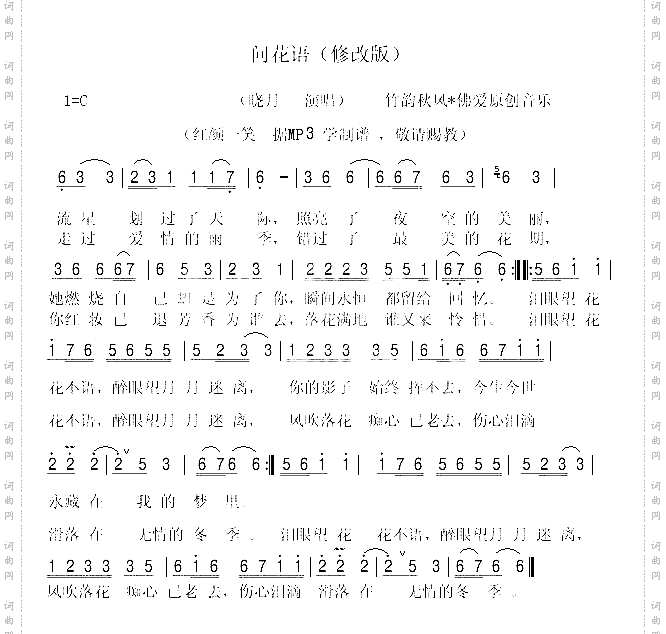 问花语（修改版）
1=C （晓月 演唱） 竹韵秋风*佛爱原创音乐
（红颜一笑 据MP3 学制谱 ，敬请赐教）
6 3 3 | 2 3 1 1 1 7 | 6 - | 3 6 6 | 6 6 7 6 3 | 5 6 3 |
流 星 划 过 了 天 际，照亮 了 夜 空 的 美 丽，
走 过 爱 情 的 雨 季，错过 了 最 美 的 花 期，
3 6 6 6 7 | 6 5 3 | 2 3 1 | 2 2 2 3 5 5 1 | 6 7 6 6 :||: 5 6 1 1 |
她燃 烧 自 己 却 是 为 了 你，瞬间永恒 都留给 回 忆。 泪眼望 花
你红 妆 已 退 芳 香 为 谁 去，落花满地 谁又来 怜 惜。 泪眼望 花
1 7 6 5 6 5 5 | 5 2 3 3 | 1 2 3 3 3 5 | 6 1 6 6 7 1 1 |
花不语，醉眼望月 月 迷 离， 你的影子 始终 挥不去，今生今世
花不语，醉眼望月 月 迷 离， 风吹落花 痴心 已老去，伤心泪滴
2 2 2 | 2 5 3 | 6 7 6 6 :| 5 6 1 1 | 1 7 6 5 6 5 5 | 5 2 3 3 |
永藏 在 我 的 梦 里。
滑落 在 无情的 冬 季 。 泪眼望 花 花不语，醉眼望月 月 迷 离，
1 2 3 3 3 5 | 6 1 6 6 7 1 1 | 2 2 2 | 2 5 3 | 6 7 6 6 ||
风吹落花 痴心 已老 去，伤心泪滴 滑落 在 无情的 冬 季 。
词曲网